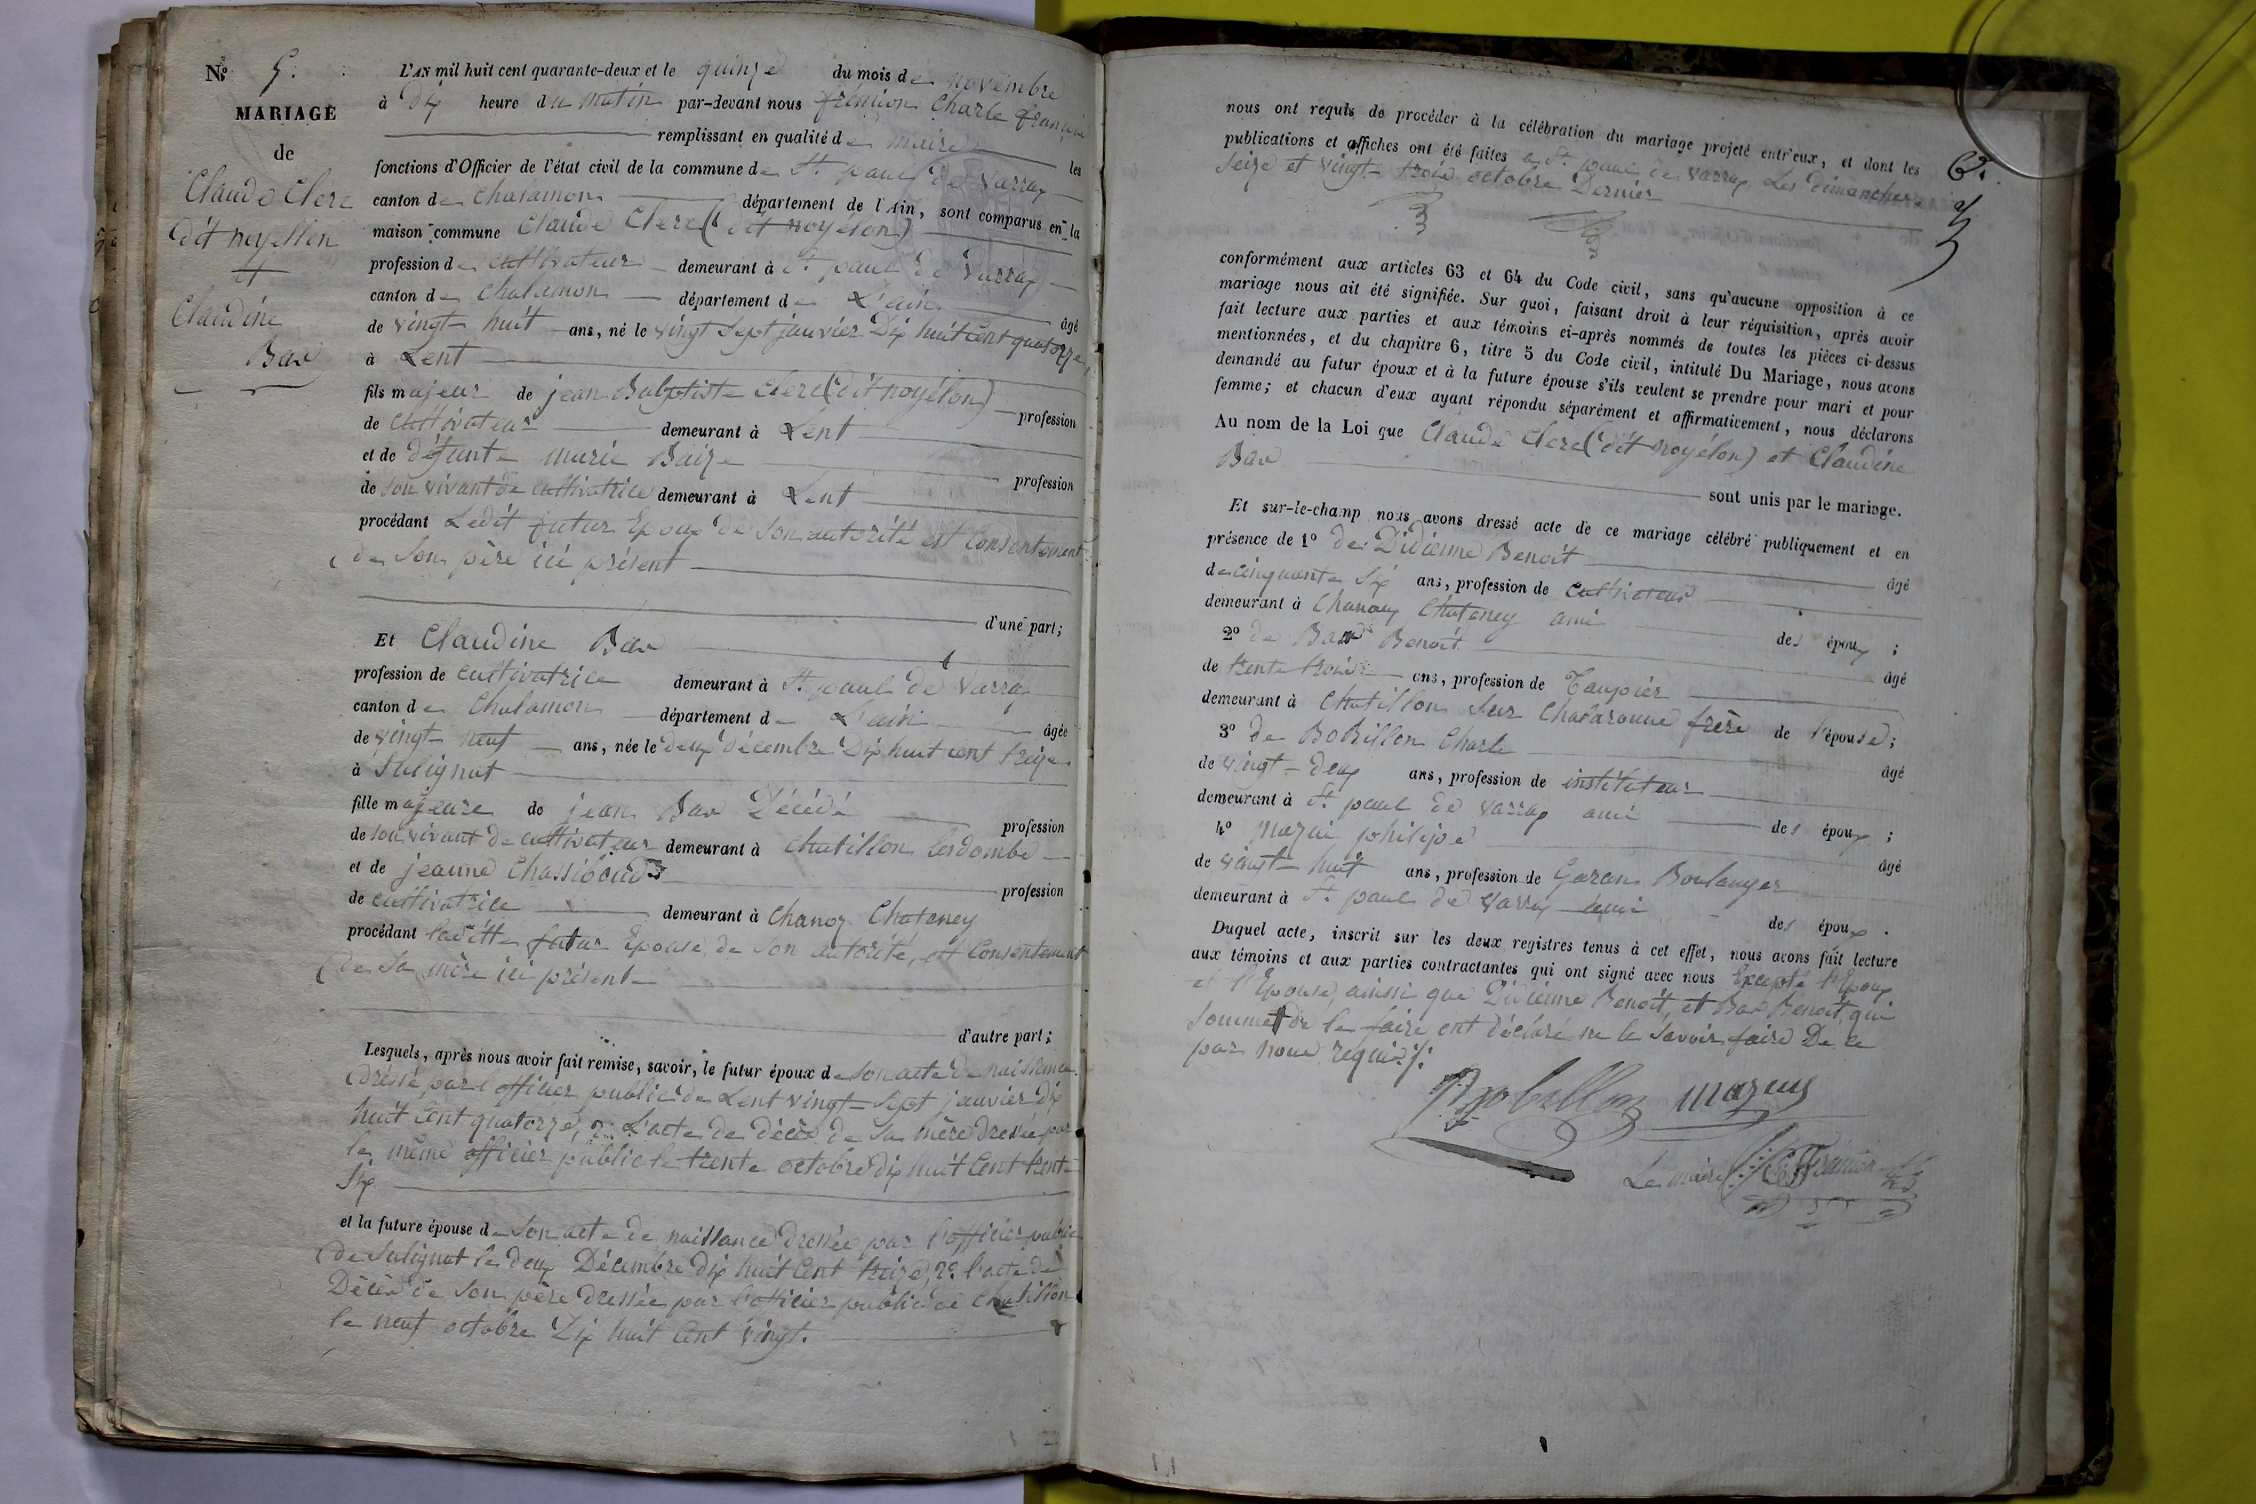 N.° 5.
MARIAGE
de
Claude Clerc
dit noyellon
et
Claudine
Bar
L'AN mil huit cent quarante-deux et le quinze du mois de novembre
à dix heure du matin par-devant nous frémion Charle françois
remplissant en qualité de maire les
fonctions d'Officier de l'état civil de la commune de St. paul de Varrax
canton de chalamon département de l'Ain, sont comparus en la
maison commune Claude Clerc (dit noyélon)
profession de cultivateur demeurant à St. paul de Varrax
canton de chalamon département de L'ain âgé
de vingt huit ans, né le vingt sept janvier Dix huit cent quatorze
à Lent
fils majeur de jean Babptiste Clerc (dit noyélon) profession
de Cultivateur demeurant à Lent
et de défunte marie Baize profession
de son vivant de cultivatrice demeurant à Lent
procédant Ledit futur Epoux de son autorité et Consentement
de Son père ici présent
d'une part;
Et Claudine Bar
profession de cultivatrice demeurant à St. paul de Varrax
canton de Chalamon département de L'ain âgée
de vingt neuf ans, née le deux décembre Dix huit cent treize
à Sulignat
fille majeure de jean Bar Décédé profession
de son vivant de cultivateur demeurant à Chatillon lesdombe
et de jeanne Chassiboud profession
de cultivatrice demeurant à Chanoz Chateney
procédant laditte futur Epouse, de son autorité, et Consentement
de Sa mère ici présente
d'autre part;
Lesquels, après nous avoir fait remise, savoir, le futur époux de Son acte de naissance
dressé par l'officier public de Lent vingt-sept janvier dix
huit Cent quatorze, 2° L'acte de décès de Sa mère dressée par
le même officier public le trente octobre dix huit Cent trente
Six
et la future épouse de Son acte de naissance dressée par l'officier public
de Sulignat le deux Décembre dix huit Cent treize, 2° l'acte de
Décès de Son père dressée par l'officier public de Chatillon
le neuf octobre Dix huit Cent vingt.
nous ont requis de procéder à la célébration du mariage projeté entr'eux, et dont les
publications et affiches ont été faites a St. paul de Varrax Les dimanches
Seize et vingt-trois octobre Dernier
conformément aux articles 63 et 64 du Code civil, sans qu'aucune opposition à ce
mariage nous ait été signifiée. Sur quoi, faisant droit à leur réquisition, après avoir
fait lecture aux parties et aux témoins ci-après nommés de toutes les pièces ci-dessus
mentionnées, et du chapitre 6, titre 5 du Code civil, intitulé Du Mariage, nous avons
demandé au futur époux et à la future épouse s'ils veulent se prendre pour mari et pour
femme; et chacun d'eux ayant répondu séparément et affirmativement, nous déclarons
Au nom de la Loi que Claude Clerc (dit noyélon) et Claudine
Bar
sont unis par le mariage.
Et sur-le-champ nous avons dressé acte de ce mariage célébré publiquement et en
présence de 1° de Didienne Benoit âgé
de cinquante six ans, profession de cultivateur
demeurant à Chanoux Chateney ami des époux;
2° de Bar Benoit âgé
de trente trois ans, profession de Taupier
demeurant à Chatillon sur Chalaronne frère de l'épouse;
3° de BoBillon Charle âgé
de vingt-deux ans, profession de instituteur
demeurant à St. paul de varrax ami des époux;
4° mazui philipe âgé
de vingt-huit ans, profession de Garcon Boulanger
demeurant à St. paul de Varrax ami des époux.
Duquel acte, inscrit sur les deux registres tenus à cet effet, nous avons fait lecture
aux témoins et aux parties contractantes qui ont signé avec nous Excepté l'Epoux
et l'Epouse, ainssi que Didienne Benoit, et Bar Benoit qui
sommet de le faire ont déclaré ne le Savoir faire De ce
par nous requis ./.
Bobillon mazuy
Le maire Ch. F. Frémion